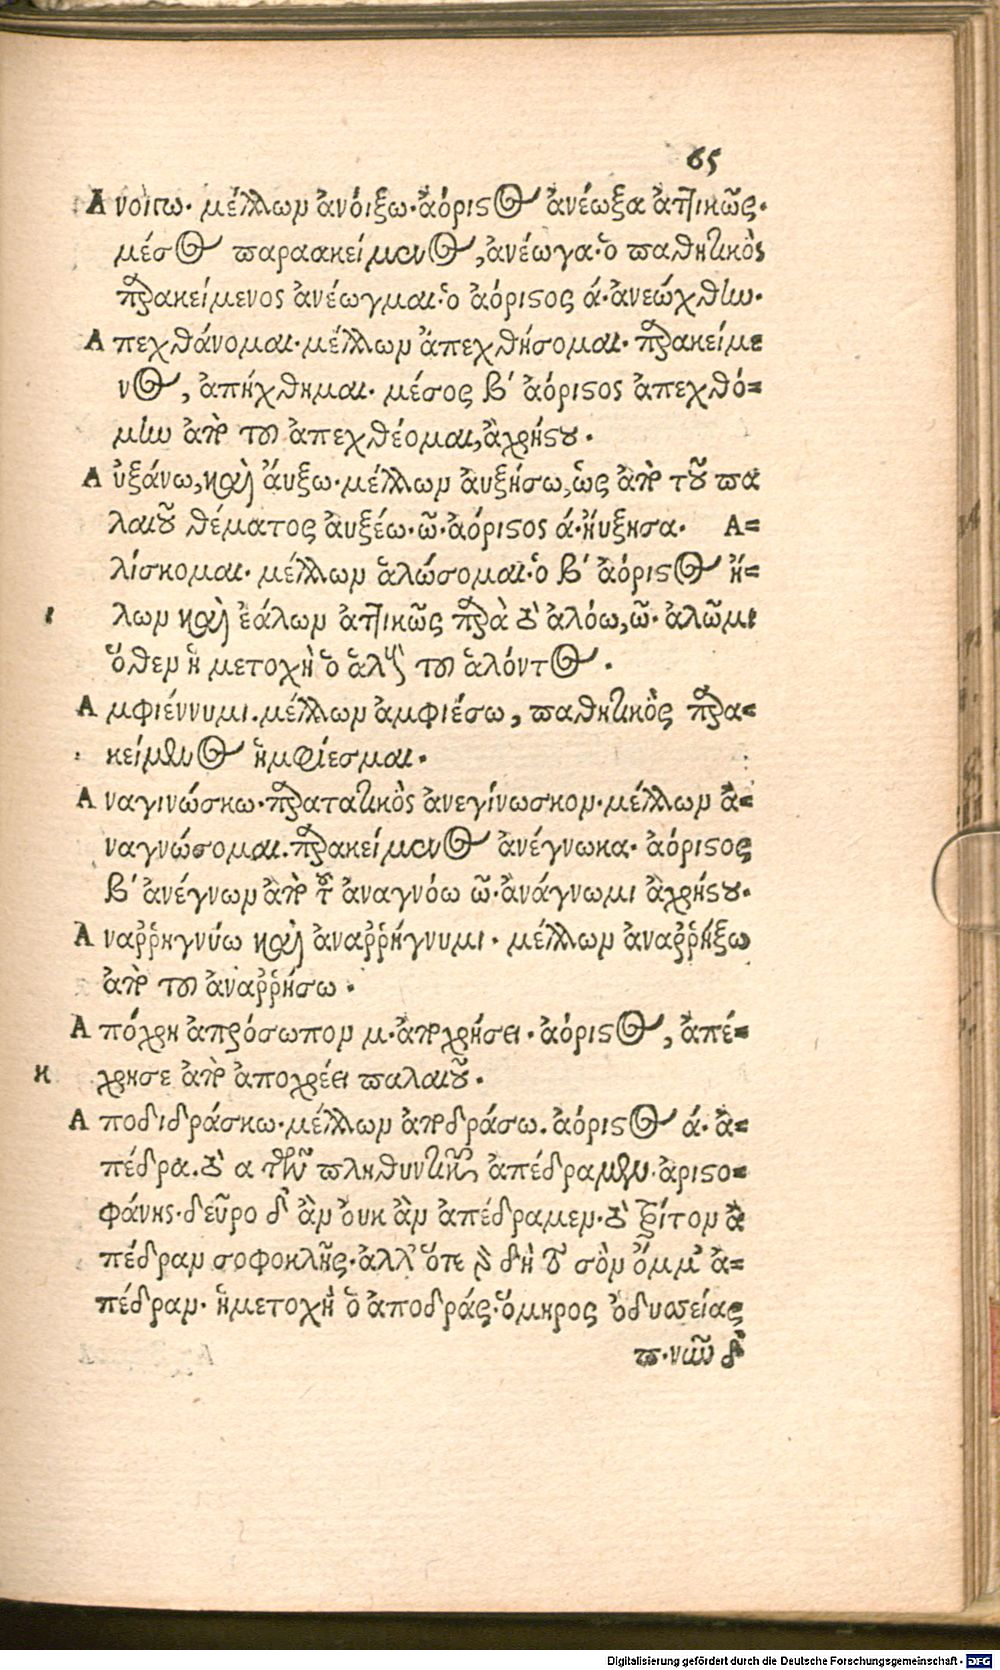 65
Ανοίγω. μέλλων ἀνοίξω. ἀόριστος ἀνέωξα ἀττικῶς.
μέσος παρακείμενος, ἀνέωγα. ὁ παθητικὸς
παρακείμενος ἀνέωγμαι. ὁ ἀόριστος ά. ἀνεώχθην.
Απεχθάνομαι. μέλλων ἀπεχθήσομαι. παρακείμε
νος, ἀπήχθημαι. μέσος β' ἀόριστος ἀπεχθό=
μην ἀπὸ τοῦ ἀπεχθέομαι, ἀχρήστου.
Αὐξάνω, καὶ ἄυξω. μέλλων ἀυξήσω, ὡς ἀπὸ τοῦ πα
λαιοῦ θέματος ἀυξέω. ῶ. ἀόριστος ά. ἤυξησα. Α=
λίσκομαι. μέλλων ἁλώσομαι. ὁ β' ἀόριστος ἥ=
λων καὶ ἑάλων ἀττικῶς παρὰ τὸ ἁλόω, ῶ. ἁλῶμι
ὅθεν ἡ μετοχὴ ὁ ἁλοὺς τοῦ ἁλόντος.
Αμφιέννυμι. μέλλων ἀμφιέσω, παθητικὸς παρα=
κείμενος ἠμφίεσμαι.
Αναγινώσκω. παρατατικὸς ἀνεγίνωσκον. μέλλων ἀ=
ναγνώσομαι. παρακείμενος ἀνέγνωκα. ἀόριστος
β' ἀνέγνων ἀπὸ τοῦ ἀναγνόω ῶ. ἀνάγνωμι ἀχρήστου.
Αναῤῥηγνύω καὶ ἀναῤῥήγνυμι. μέλλων ἀναῤῥήξω
ἀπὸ τοῦ ἀναῤῥήσω.
Απόχρη ἀπρόσωπον μ. ἀποχρήσει. ἀόριστος, ἀπέ=
χρησε ἀπὸ ἀποχρέει παλαιοῦ.
Αποδιδράσκω. μέλλων ἀποδράσω. ἀόριστος ά. ἀ=
πέδρα. τὸ α τῶν πληθυντικῶν ἀπέδραμεν. ἀριστο=
φάνης. δεῦρο δ' ἂν ὀυκ ἂν ἀπέδραμεν. τὸ τρίτον ἀ
πέδραν σοφοκλῆς. ἀλλ' ὅτε δὴ τὸ σὸν ὄμμ' ἀ=
πέδραν. ἡ μετοχὴ ὁ ἀποδράς. ὅμηρος ὀδυσσείας
π. νῶϊν δ'